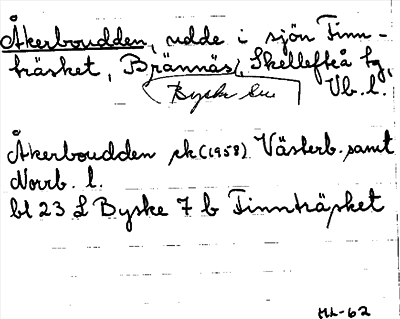 Åkerboudden, udde i sjön Finn-
träsket, Brännäs, Skellefteå tg,
Byske sn Vb. l.
Åkerboudden sk (1958) Västerb. samt
Norrb. l.
bl 23 L Byske 7 b Finnträsket
ML-62